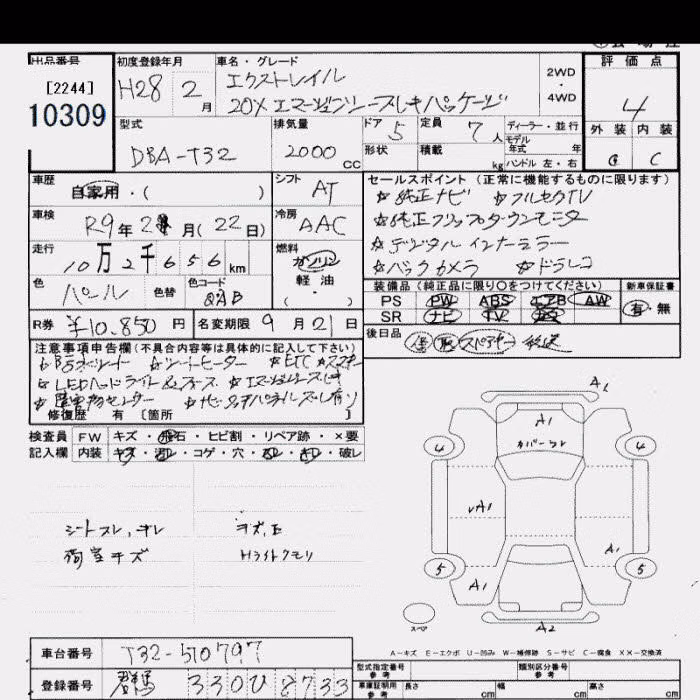 出品番号 初度登録年月 車名・グレード 評価点
[2244] H28 2月 エクストレイル 2WD・4WD 4
10309 20X エマージェンシーブレーキパッケージ
型式 排気量 ドア 5 定員 7人 ディーラー・並行 外装 内装
DBA-T32 2000CC 形状 積載 kg モデル年式 年 C
ハンドル 左・右
車歴 シフト セールスポイント(正常に機能するものに限ります)
自家用・( ) AT ☆純正ナビ ☆フルセグTV
車検 冷房 ☆純正フリップダウンモニター
R9年2月(22日) AAC ☆デジタルインナーミラー
走行 燃料 ☆バックカメラ ☆ドラレコ
10万2千656km ガソリン
色 色替 色コード 軽油 装備品(純正品に限り○をつけてください) 新車保証書
パール ・( ) PS PW ABS エアB AW 有・無
SR ナビ TV
R券 ¥10,850円 名変期限 9月21日 後日品 スペアキー 後送
注意事項申告欄(不具合内容等は具体的に記入して下さい)
☆シートヒーター ☆ETC
☆LEDヘッドライト
修復歴 有 [箇所 ]
検査員 FW キズ・飛石・ヒビ割・リペア跡・×要
記入欄 内装 キズ・コゲ・穴・破レ
シートスレ、ヨレ
荷室キズ Hライトクモリ
A1
A1
カバースレ
4 4
A1
A1
5 5
A1
スペア A2
A-キズ E-エクボ U-凹み W-補修跡 S-サビ C-腐食 XX-交換済
車台番号 T32-510797
型式指定番号 参考 類別区分番号 参考
登録番号 群馬 330 ひ 8733
車庫証明用 参考 長さ cm 幅 cm 高さ cm